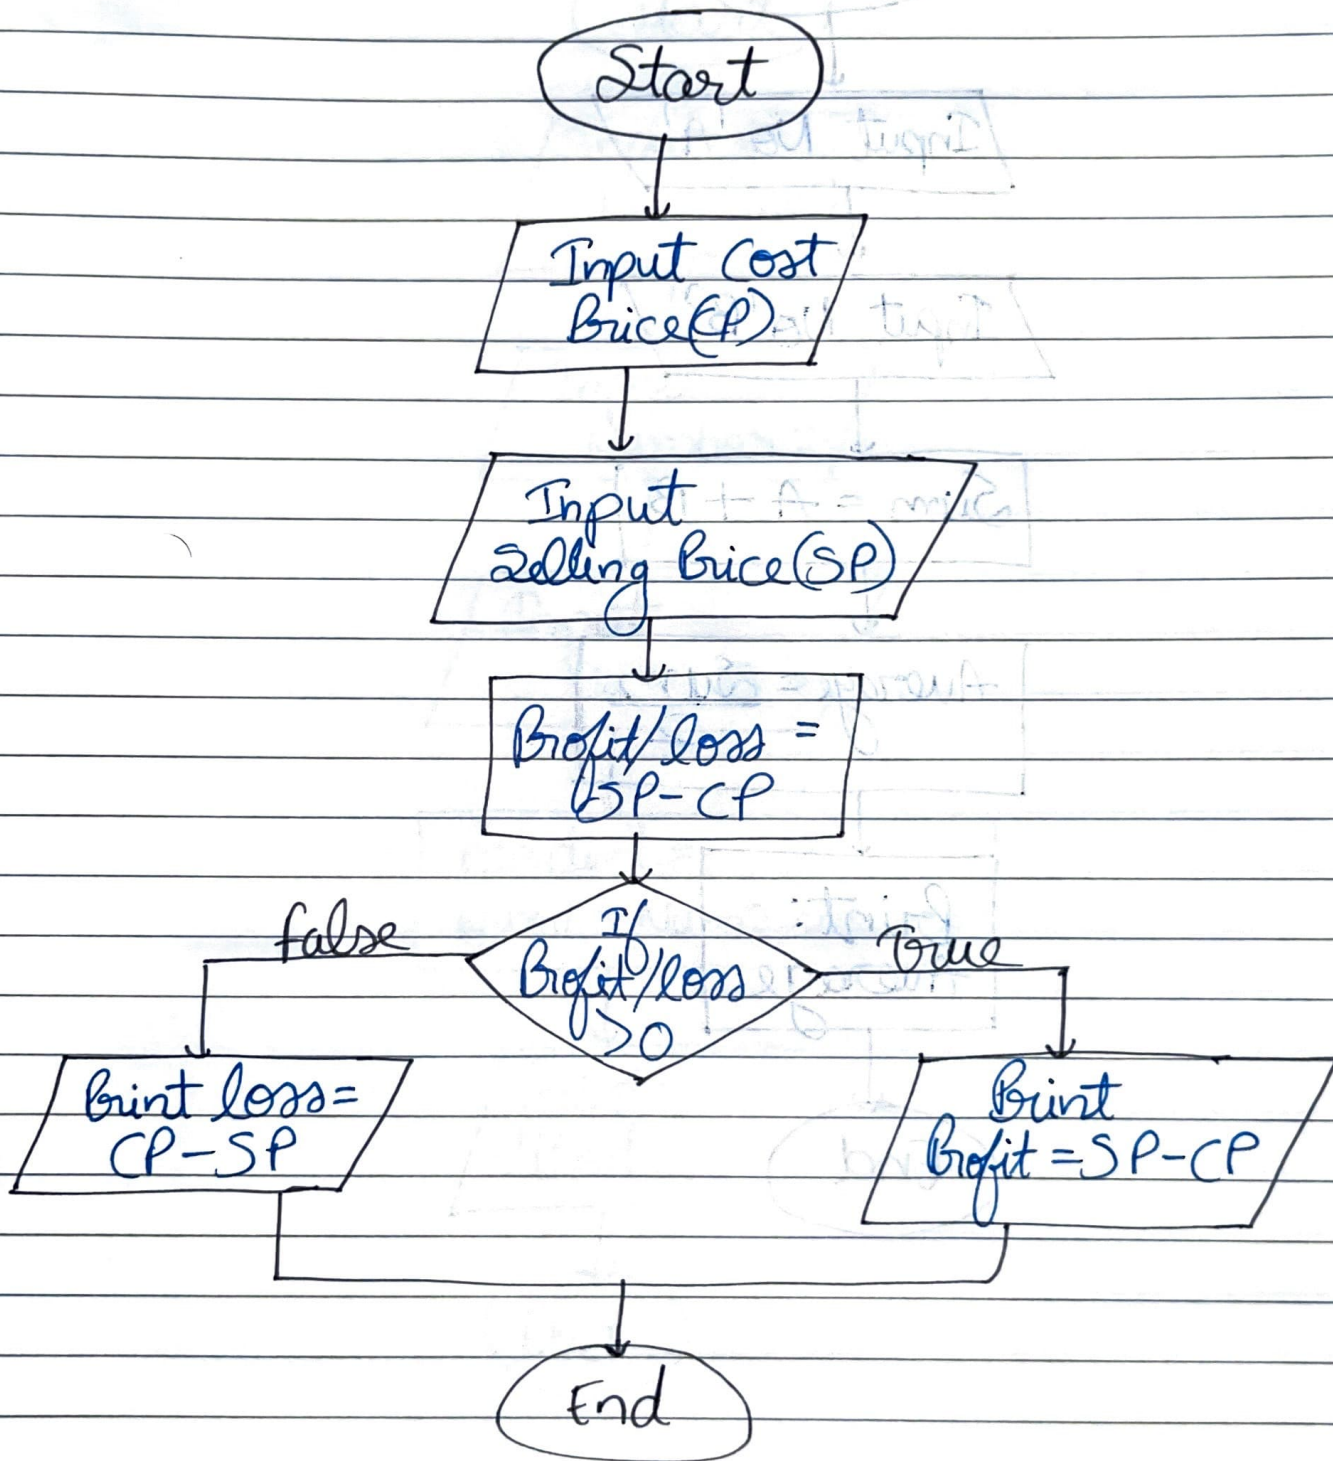 Start
Input Cost
Price(CP)
Input
Selling Price(SP)
Profit/loss =
SP-CP
If
Profit/loss
>0
false
True
Print loss=
CP-SP
Print
Profit=SP-CP
End